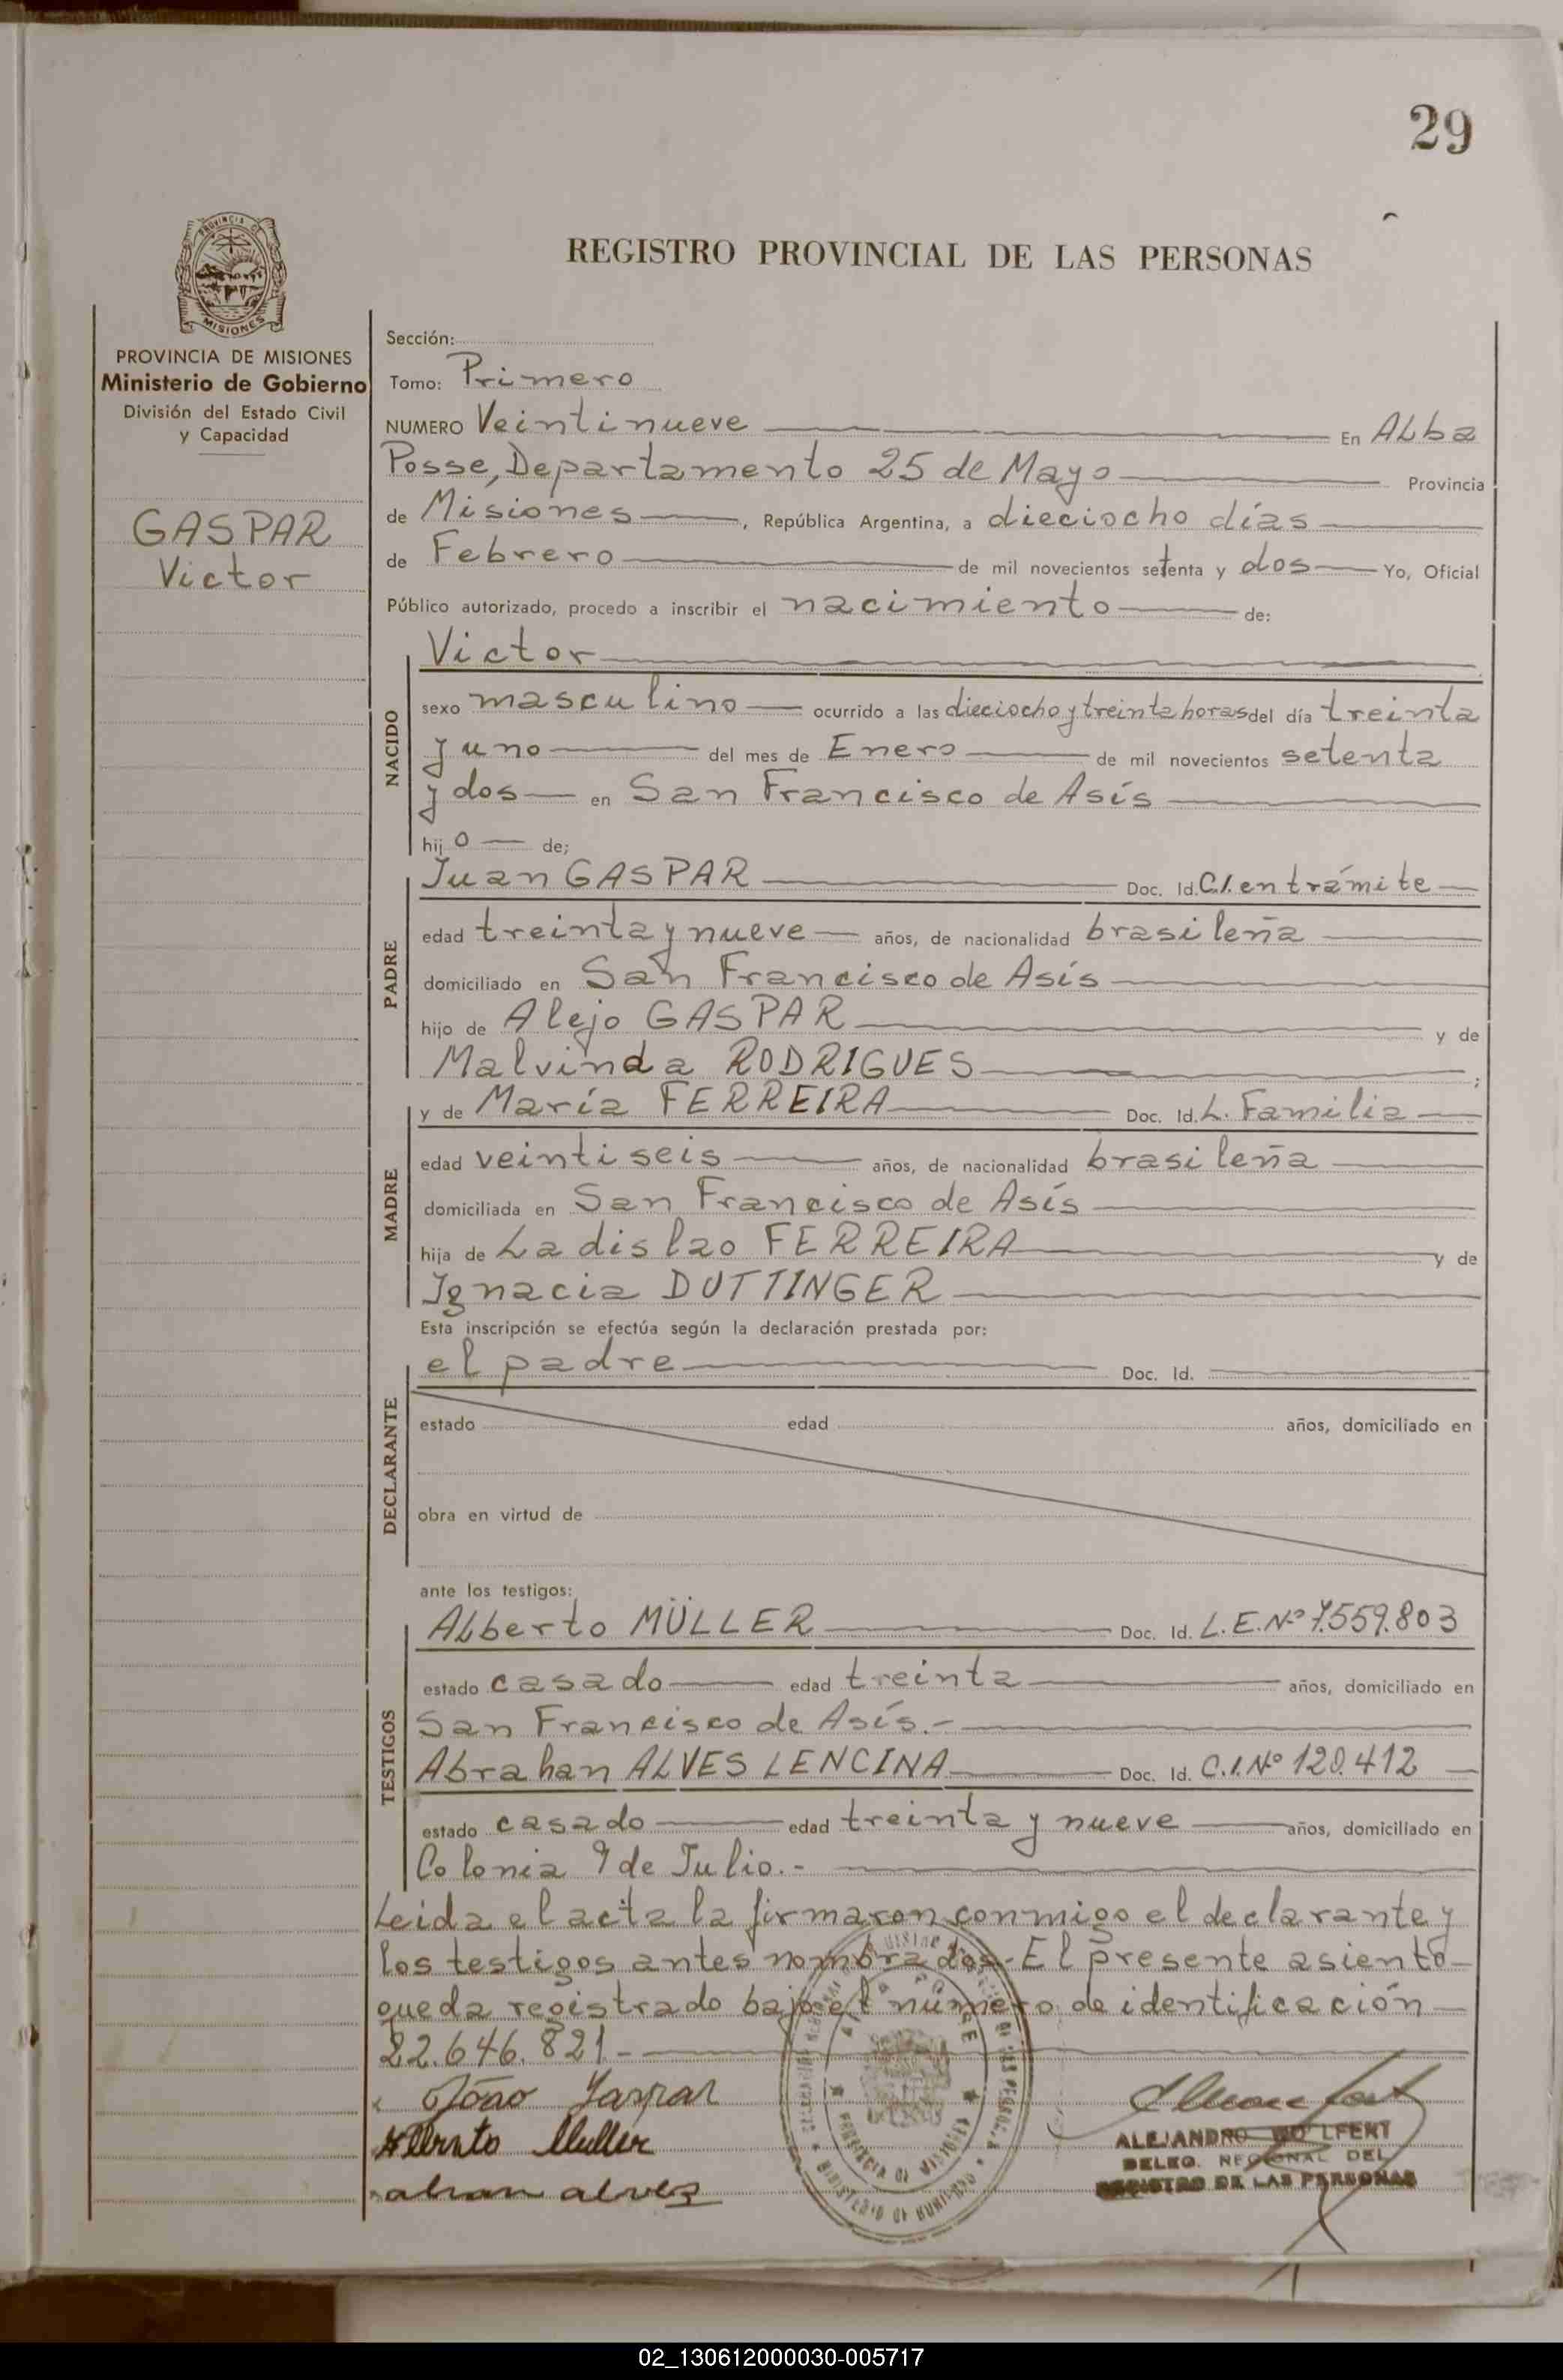 29
PROVINCIA DE
MISIONES
REGISTRO PROVINCIAL DE LAS PERSONAS
PROVINCIA DE MISIONES
Ministerio de Gobierno
División del Estado Civil
y Capacidad
GASPAR
Victor
Sección:
Tomo: Primero
NUMERO Veintinueve En Alba
Posse, Departamento 25 de Mayo Provincia
de Misiones, República Argentina, a dieciocho días
de Febrero de mil novecientos setenta y dos Yo, Oficial
Público autorizado, procedo a inscribir el nacimiento de:
NACIDO
Victor
sexo masculino ocurrido a las dieciocho y treinta horas del día treinta
y uno del mes de Enero de mil novecientos setenta
y dos en San Francisco de Asís
hijo de;
PADRE
Juan GASPAR Doc. Id. C.I. en trámite
edad treinta y nueve años, de nacionalidad brasileña
domiciliado en San Francisco de Asís
hijo de Alejo GASPAR y de
Malvinda RODRIGUES ;
MADRE
y de María FERREIRA Doc. Id. L. Familia
edad veintiseis años, de nacionalidad brasileña
domiciliada en San Francisco de Asís
hija de Ladislao FERREIRA y de
Ignacia DUTTINGER
Esta inscripción se efectúa según la declaración prestada por:
DECLARANTE
el padre Doc. Id.
estado edad años, domiciliado en
obra en virtud de
ante los testigos:
TESTIGOS
Alberto MÜLLER Doc. Id. L.E.Nº 7.559.803
estado casado edad treinta años, domiciliado en
San Francisco de Asís.-
Abrahan ALVES LENCINA Doc. Id. C.I.Nº 120.412
estado casado edad treinta y nueve años, domiciliado en
Colonia 9 de Julio.-
Leida el acta la firmaron conmigo el declarante y
los testigos antes nombrados.- El presente asiento
queda registrado bajo el número de identificación
22.646.821.-
João Gaspar
Alberto Muller
abran alves
ALEJANDRO WOLFERT
DELEG. REGIONAL DEL
REGISTRO DE LAS PERSONAS
02_130612000030-005717